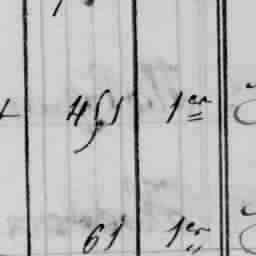 451 1er
61 1er